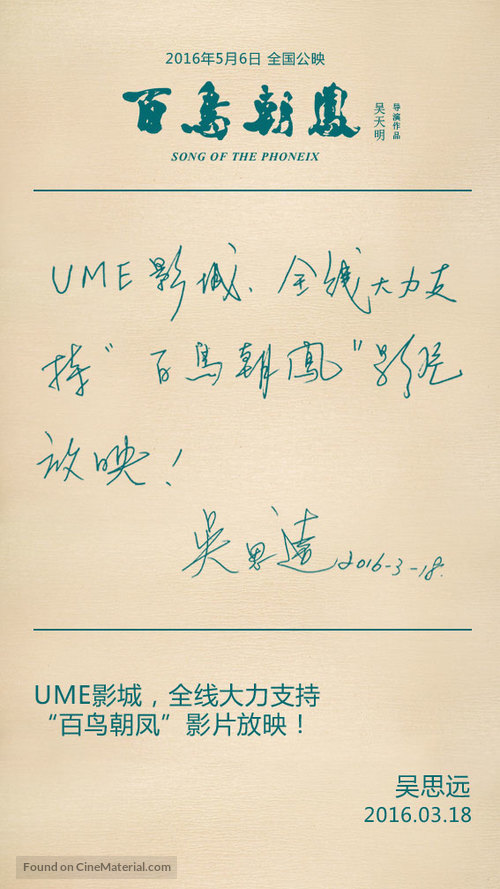 2016年5月6日 全国公映
百鳥朝鳳
吴天明
导演作品
SONG OF THE PHONEIX
UME影城、全线大力支
持“百鸟朝鳳”影片
放映！
吴思遠 2016-3-18.
UME影城，全线大力支持
“百鸟朝凤”影片放映！
吴思远
2016.03.18
Found on CineMaterial.com